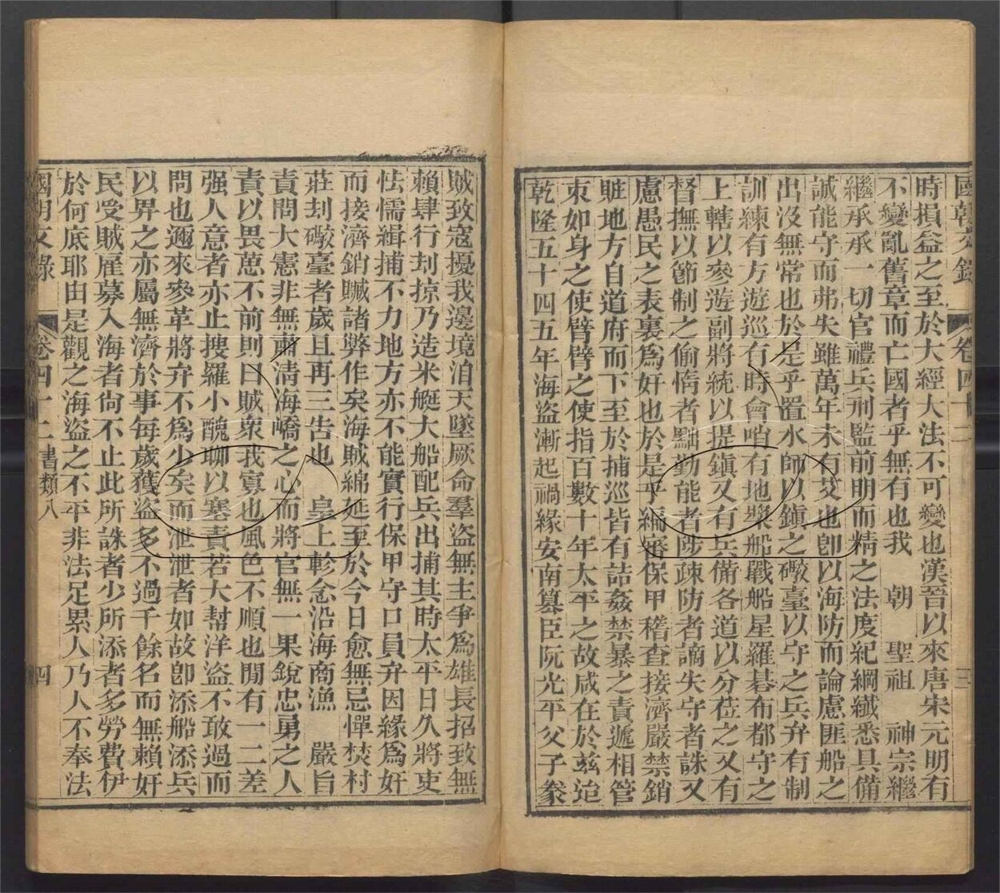 國朝文錄 卷四十二 三
時損益之至於大經大法不可變也漢晉以來唐宋元明有
不變亂舊章而亡國者乎無有也我 朝 聖祖 神宗繼
繼承承一切官禮兵刑監前明而精之法度紀綱纖悉具備
誠能守而弗失雖萬年未有艾也卽以海防而論慮匪船之
出沒無常也於是乎置水師以鎭之礮臺以守之兵弁有制
訓練有方遊巡有時會哨有地槳船戰船星羅碁布都守之
上轄以參遊副將統以提鎭又有兵備各道以分莅之又有
督撫以節制之偷惰者黜勤能者陟疎防者謫失守者誅又
慮愚民之表裏爲奸也於是乎編審保甲稽查接濟嚴禁銷
賍地方自道府而下至於捕巡皆有詰姦禁暴之責遞相管
束如身之使臂臂之使指百數十年太平之故咸在於茲迨
乾隆五十四五年海盜漸起禍緣安南簒臣阮光平父子豢
賊致寇擾我邊境洎天墜厥命羣盜無主爭爲雄長招致無
賴肆行刦掠乃造米艇大船配兵出捕其時太平日久將吏
怯懦緝捕不力地方亦不能實行保甲守口員弁因緣爲奸
而接濟銷贓諸弊作矣海賊綿延至於今日愈無忌憚焚村
莊刦礮臺者歲且再三告也 皇上軫念沿海商漁 嚴旨
責問大憲非無肅淸海嶠之心而將官無一果銳忠勇之人
責以畏葸不前則曰賊衆我寡也風色不順也閒有一二差
强人意者亦止搜羅小醜聊以塞責若大幫洋盜不敢過而
問也邇來參革將弁不爲少矣而泄泄者如故卽添船添兵
以畀之亦屬無濟於事每歲獲盜多不過千餘名而無賴奸
民受賊雇募入海者尙不止此所誅者少所添者多勞費伊
於何底耶由是觀之海盜之不平非法足累人乃人不奉法
國朝文錄 卷四十二 書類八 四